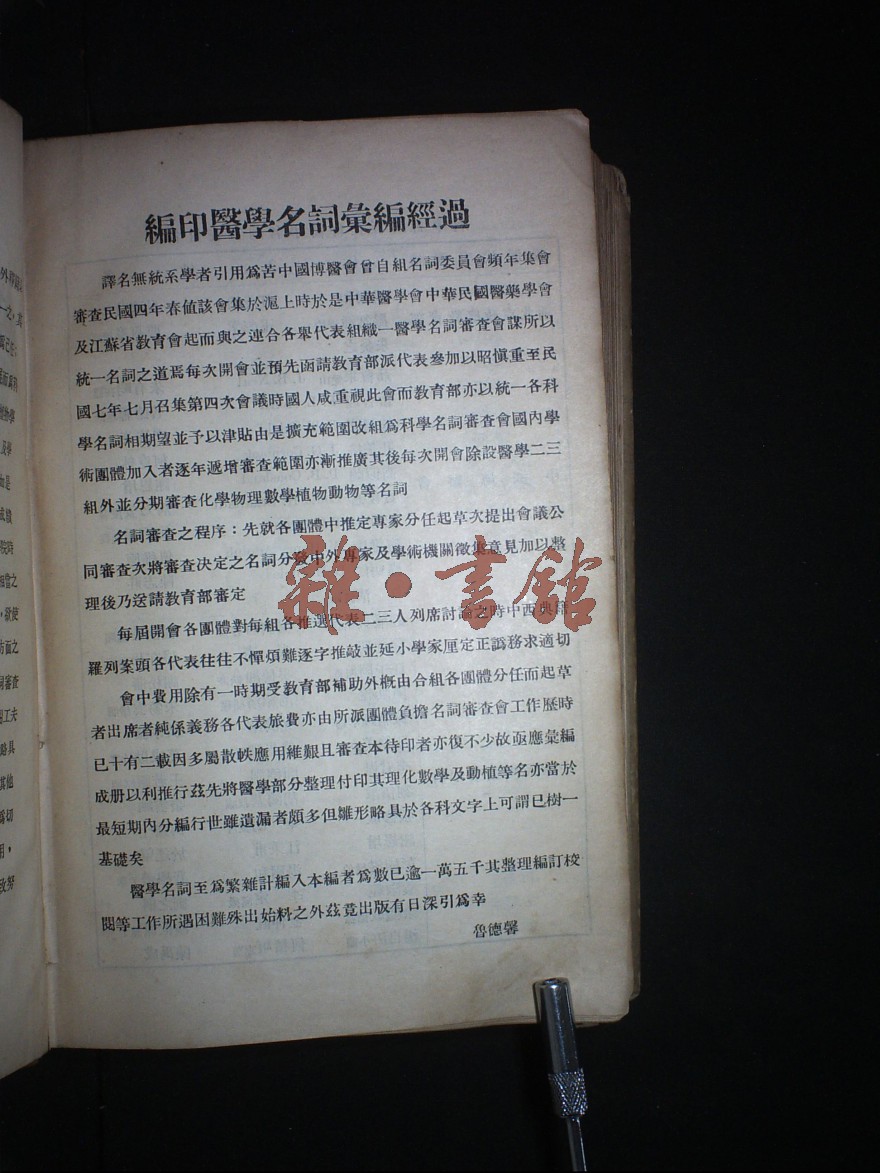 編印醫學名詞彙編經過
譯名無統系學者引用爲苦中國博醫會曾自組名詞委員會頻年集會
審查民國四年春値該會集於滬上時於是中華醫學會中華民國醫藥學會
及江蘇省教育會起而與之連合各舉代表組織一醫學名詞審查會謀所以
統一名詞之道焉每次開會並預先函請教育部派代表參加以昭愼重至民
國七年七月召集第四次會議時國人咸重視此會而教育部亦以統一各科
學名詞相期望並予以津貼由是擴充範圍改組爲科學名詞審查會國內學
術團體加入者逐年遞增審查範圍亦漸推廣其後每次開會除設醫學二三
組外並分期審查化學物理數學植物動物等名詞
名詞審查之程序：先就各團體中推定專家分任起草次提出會議公
同審查次將審查决定之名詞分致中外專家及學術機關徵集意見加以整
理後乃送請教育部審定
每屆開會各團體對每組各推選代表二三人列席討論之時中西典籍
羅列案頭各代表往往不憚煩難逐字推敲並延小學家厘定正譌務求適切
會中費用除有一時期受教育部補助外槪由合組各團體分任而起草
者出席者純係義務各代表旅費亦由所派團體負擔名詞審查會工作歷時
已十有二載因多屬散帙應用維艱且審查本待印者亦復不少故亟應彙編
成册以利推行茲先將醫學部分整理付印其理化數學及動植等名亦當於
最短期內分編行世雖遺漏者頗多但雛形略具於各科文字上可謂已樹一
基礎矣
醫學名詞至爲繁雜計編入本編者爲數已逾一萬五千其整理編訂校
閱等工作所遇困難殊出始料之外茲竟出版有日深引爲幸
魯德馨
雜·書館